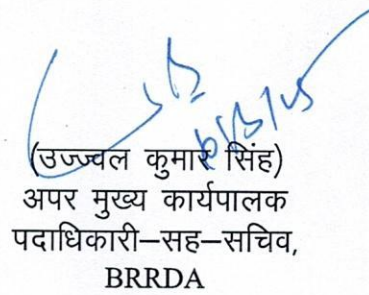 (उज्ज्वल कुमार सिंह)
अपर मुख्य कार्यपालक
पदाधिकारी–सह–सचिव,
BRRDA